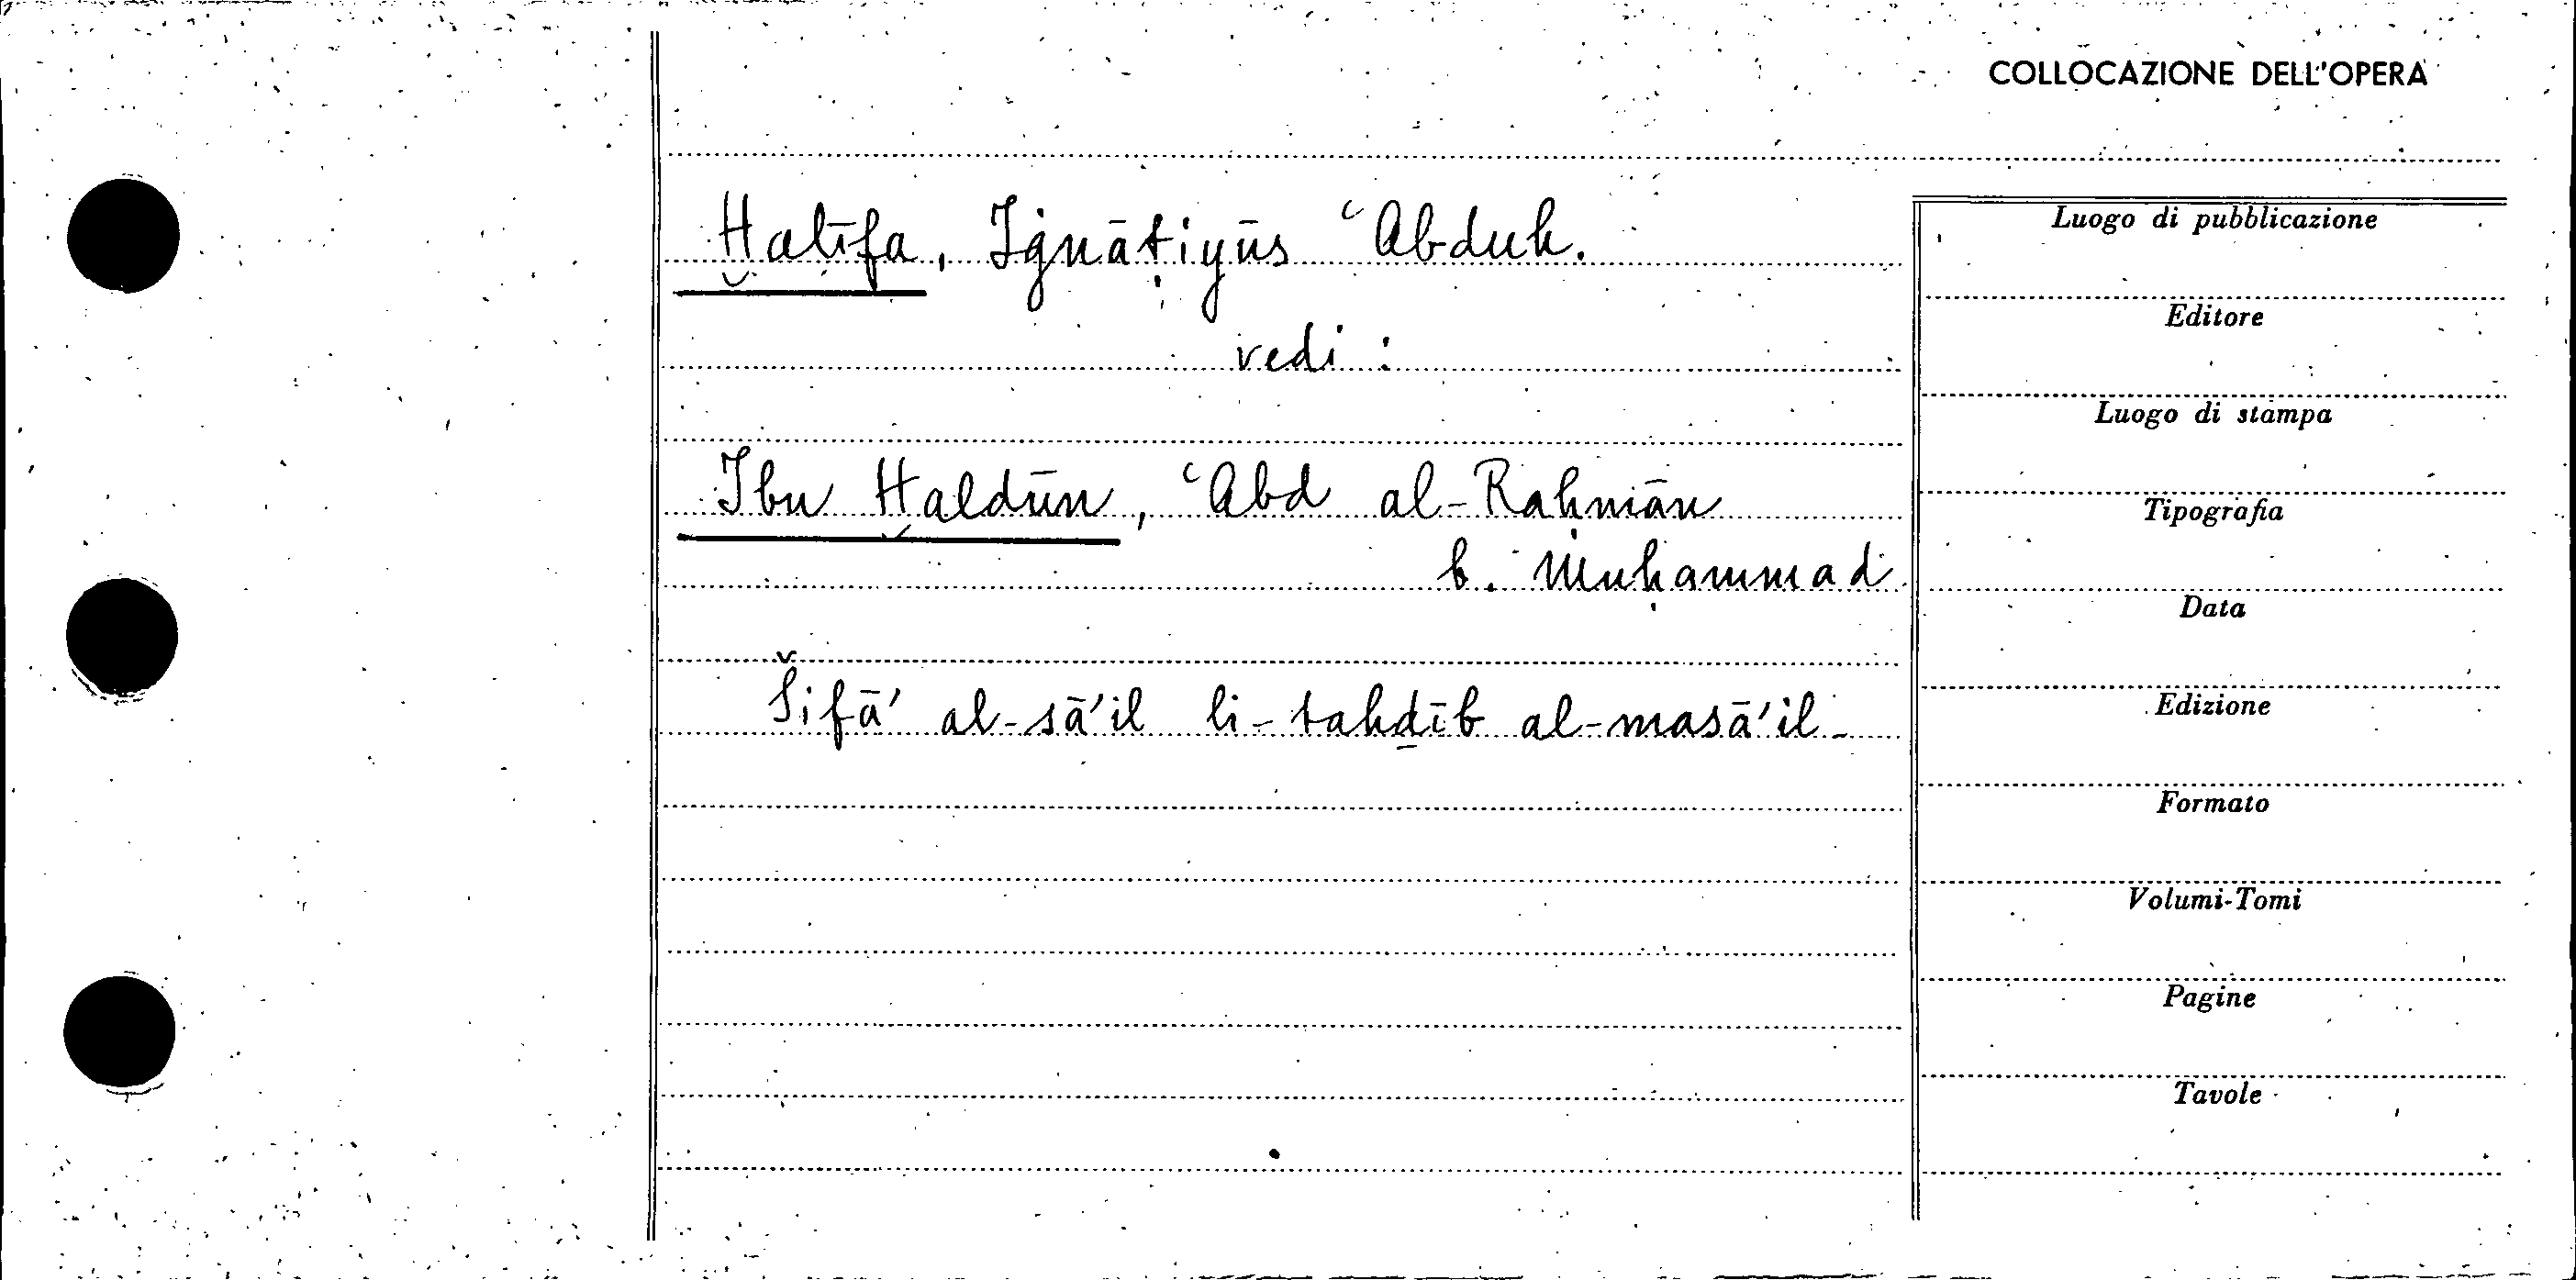 COLLOCAZIONE DELL'OPERA
Ḫalīfa, Iġnāṭiyūs ʿAbduh.
vedi :
Ibn Ḫaldūn, ʿAbd al-Raḥmān
b. Muḥammad
Šifā' al-sā'il li-tahḏīb al-masā'il-
Luogo di pubblicazione
Editore
Luogo di stampa
Tipografia
Data
Edizione
Formato
Volumi-Tomi
Pagine
Tavole